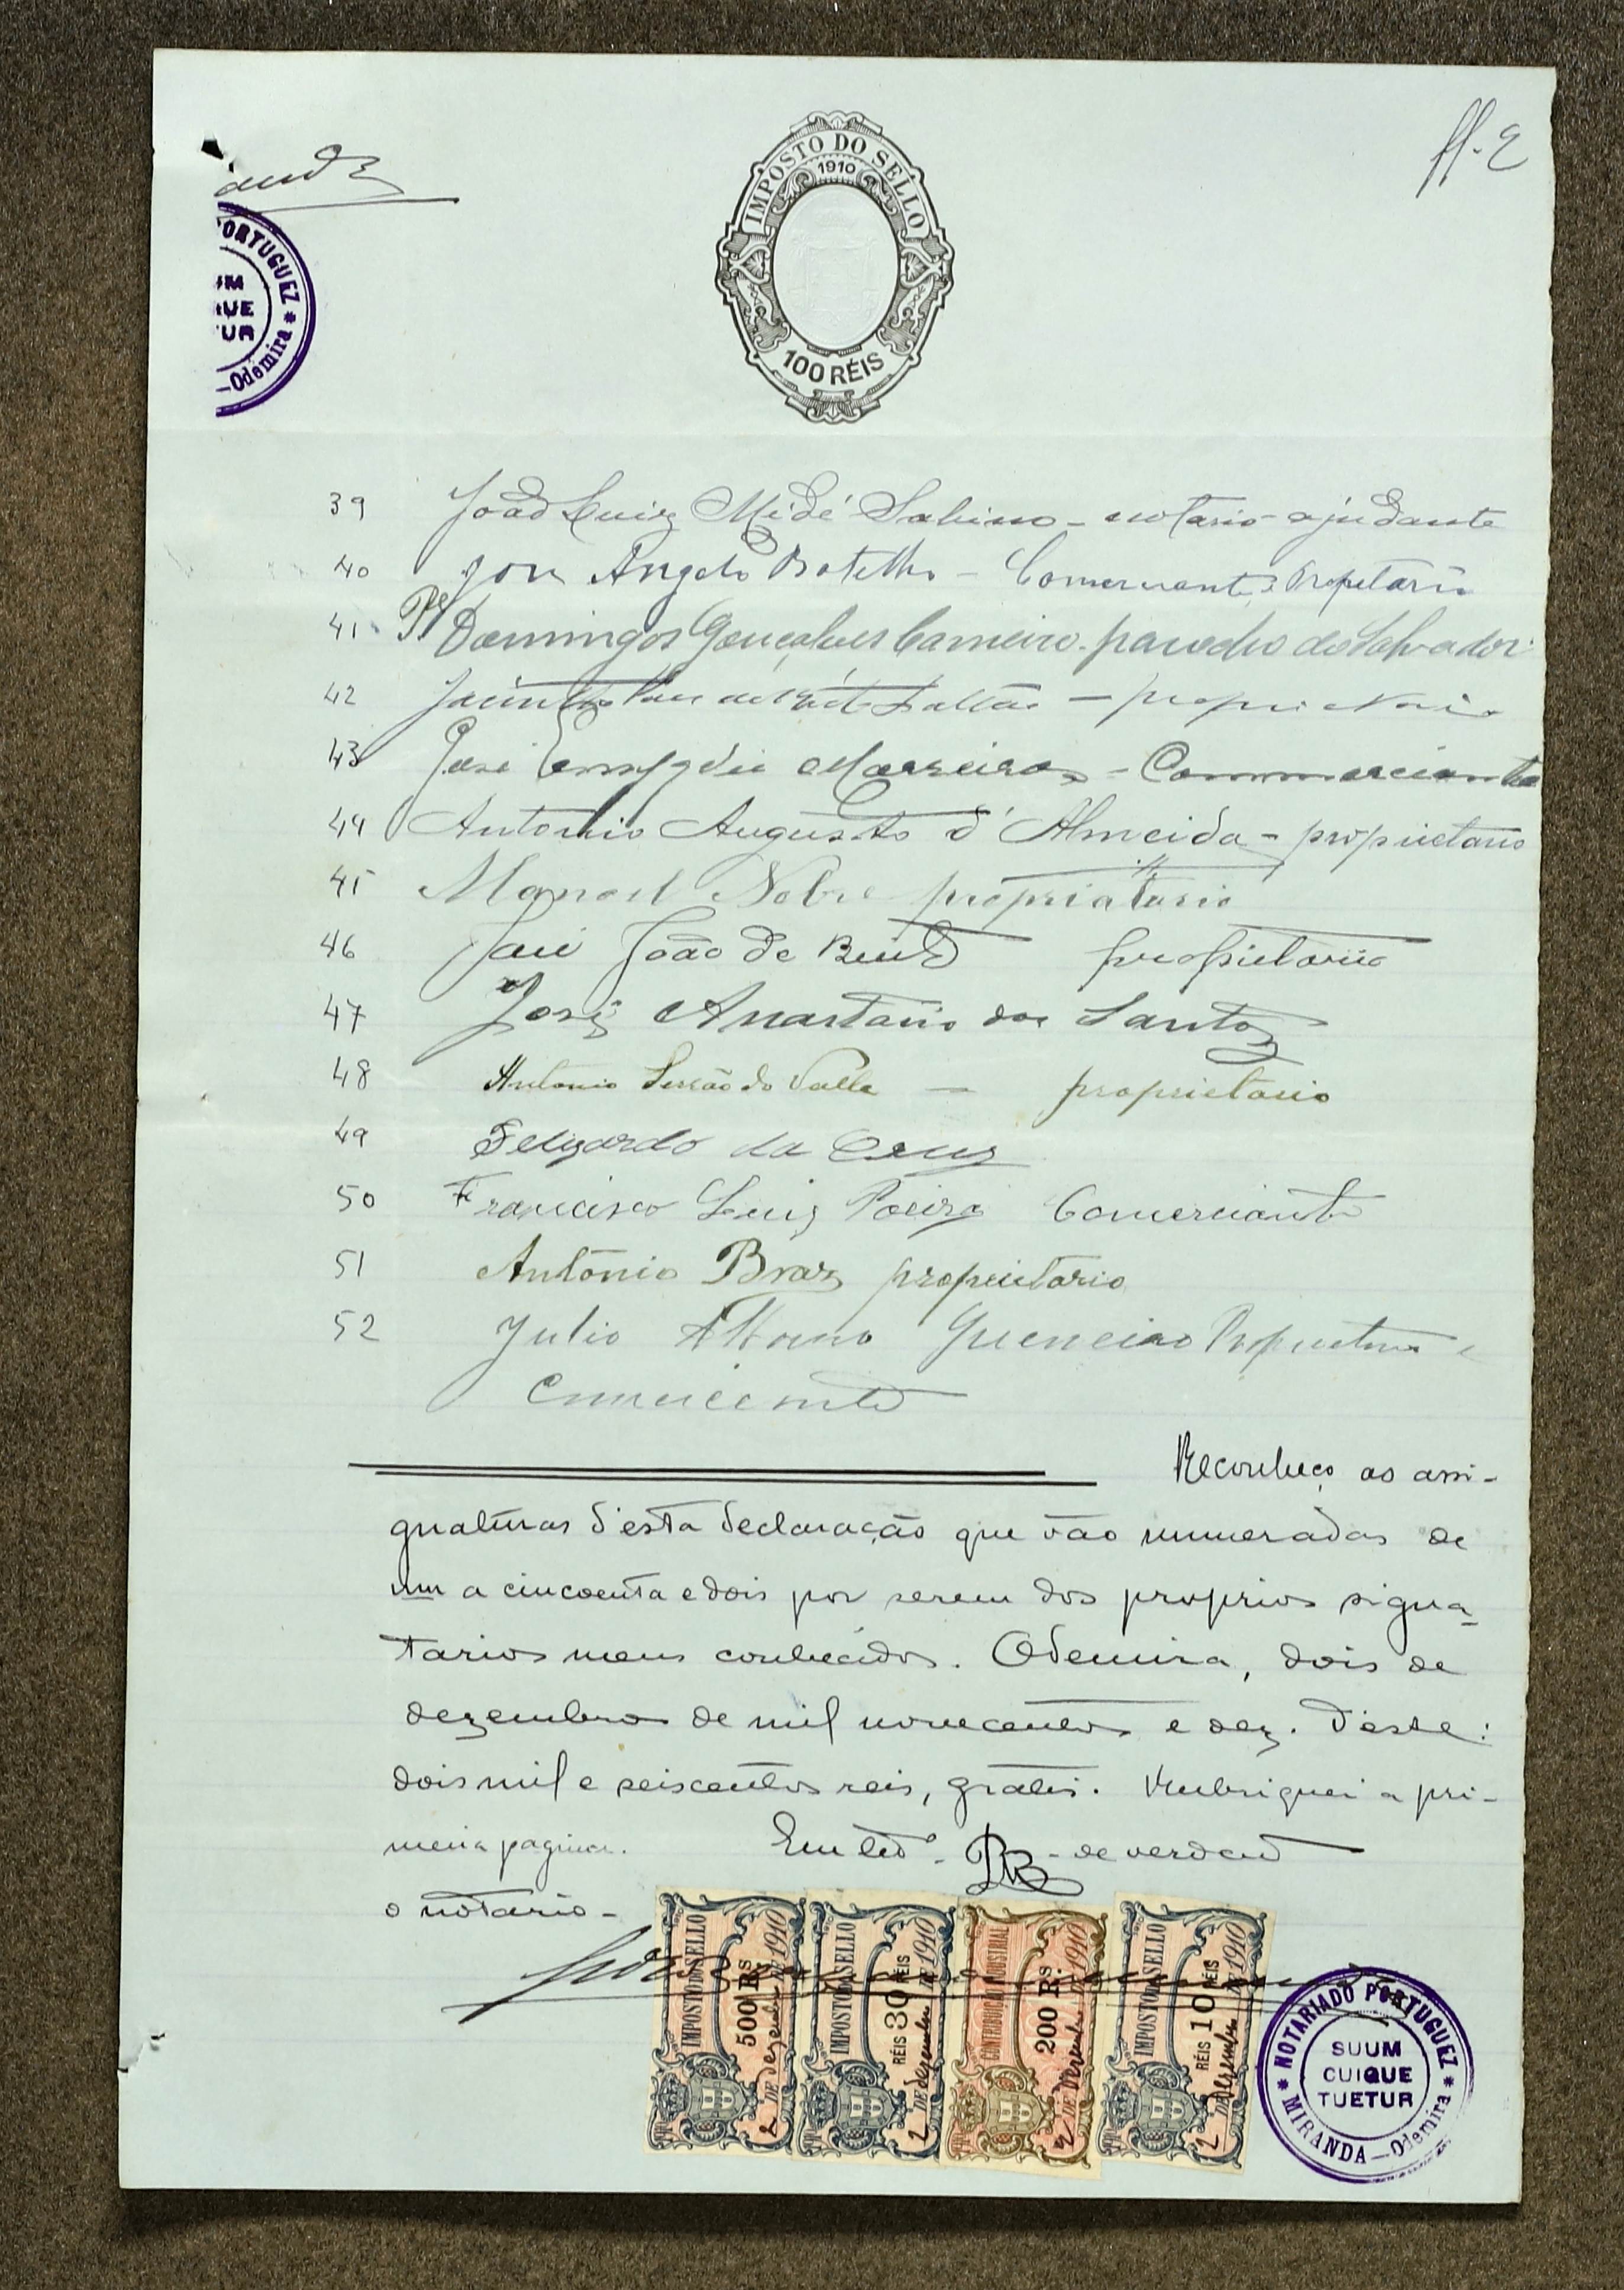 ff. 2
IMPOSTO DO SELLO
1910
100 RÉIS
PORTUGUEZ
Odemira
39 João Luiz Midé Sabino - notario ajudante
40 José Angelo Botelho - Comerciante e Propetario
41 Pe Domingos Gonçalves Carneiro - parocho do Salvador
42 Jacintho - proprietario
43 José Empydio Marreiros - Commerciante
44 Antonio Augusto d'Almeida - proprietario
45 Manoel Nobre propriatario
46 José João de propietario
47 José Anastacio dos Santos
48 Antonio Serrão do Valle - proprietario
49 Felizardo da Cruz
50 Francisco Luiz Poeira Comerciante
51 António Braz proprietario
52 Julio Guerreiro Proprietario e
Comerciante
Reconheço as assi-
gnaturas d'esta declaração que vão numeradas de
um a cincoenta e dois por serem dos proprios signa-
tarios meus conhecidos. Odemira, dois de
dezembro de mil novecentos e dez. D'esta:
dois mil e seiscentos reis, gratis. Rubriquei a pri-
meira pagina. Em testo - de verdade
o notario -
IMPOSTO DO SELLO 500 Rs 2 DE dezembro DE 1910
IMPOSTO DO SELLO RÉIS 30 RÉIS 2 DE dezembro DE 1910
CONTRIBUIÇÃO INDUSTRIAL 200 Rs. 2 DE Dezembro DE 1910
IMPOSTO DO SELLO RÉIS 10 RÉIS 2 DE Dezembro DE 1910
NOTARIADO PORTUGUEZ
SUUM
CUIQUE
TUETUR
MIRANDA - Odemira